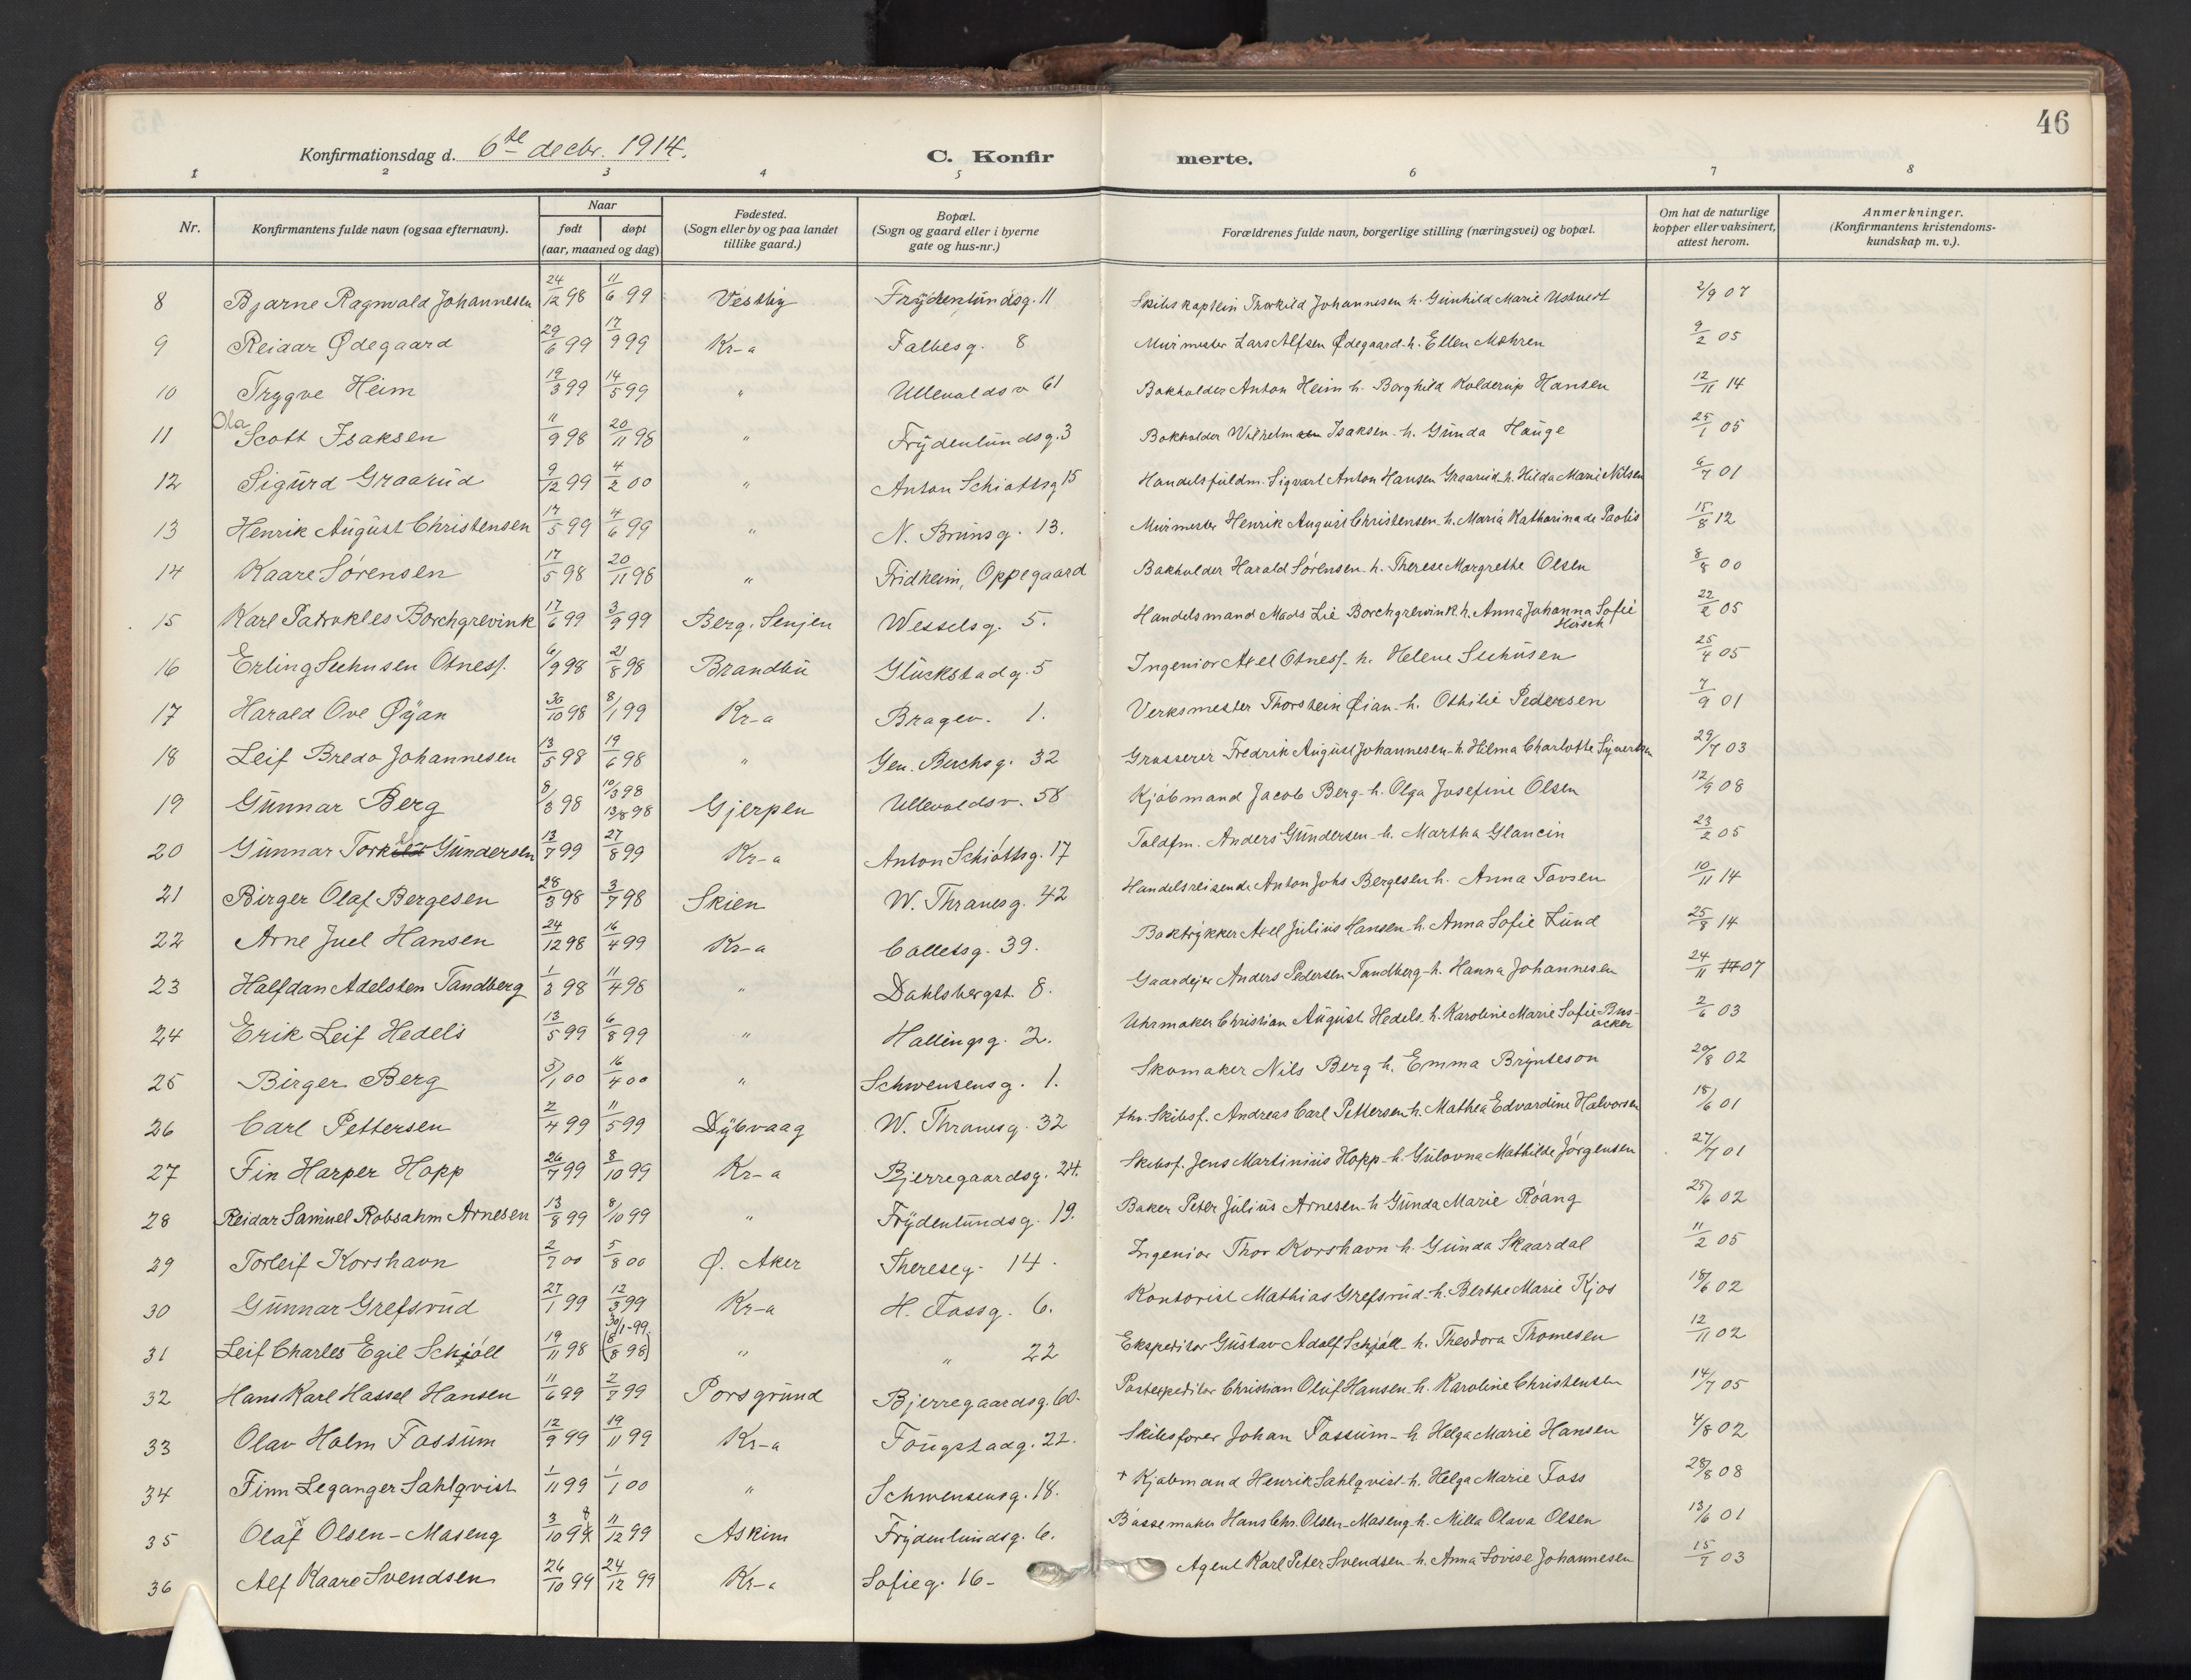 46
Konfirmationsdag d. 6te decbr. 1914. C. Konfirmerte.
1 2 3 4 5 6 7 8
Nr. Konfirmantens fulde navn (ogsaa efternavn). Naar født døpt (aar, maaned og dag) Fødested. (Sogn eller by og paa landet tillike gaard.) Bopæl. (Sogn og gaard eller i byerne gate og hus-nr.) Forældrenes fulde navn, borgerlige stilling (næringsvei) og bopæl. Om hat de naturlige kopper eller vaksinert, attest herom. Anmerkninger. (Konfirmantens kristendomskundskap m. v.).
8 Bjarne Ragnvald Johannesen 24/12 98 11/6 99 Vestby Frydenlundsg. 11 Skibskaptein Thorkild Johannesen h. Gunhild Marie Ustvedt 2/9 07
9 Reidar Ødegaard 29/6 99 17/9 99 Kr-a Falbesg. 8 Murmester Lars Alfsen Ødegaard - h. Ellen Mohren 9/2 05
10 Trygve Heim 19/3 99 14/5 99 " Ullevoldsv 61 Bokholder Anton Heim h. Borghild Kolderup Hansen 12/11 14
11 Ola Scott Isaksen 11/9 98 20/11 98 " Frydenlundsg. 3 Bokholder Wilhelm Isaksen - h. Gunda Hauge 25/1 05
12 Sigurd Graarud 9/12 99 4/2 00 " Anton Schiøttsg 15 Handelsfuldm. Sigvart Anton Hansen Graarud - h. Hilda Marie Nilsen 6/7 01
13 Henrik August Christensen 17/5 99 4/6 99 " N. Brunsg. 13. Murmester Henrik August Christensen - h. Maria Katharina de Paolis 15/8 12
14 Kaare Sørensen 17/5 98 20/11 98 " Fridheim, Oppegaard Bokholder Harald Sørensen - h. Therese Margrethe Olsen 8/8 00
15 Karl Patrokles Borchgrevink 17/6 99 3/9 99 Berg, Senjen Wesselsg. 5. Handelsmand Mads Lie Borchgrevink h. Anna Johanna Sofie Hirsch 22/2 05
16 Erling Seehusen Otness. 6/9 98 21/8 98 Brandbu Gluckstadg. 5 Ingeniør Axel Otness - h. Helene Seehusen 25/4 05
17 Harald Ove Øyan 30/10 98 8/1 99 Kr-a Bragev. 1. Verksmester Thorstein Øian - h. Othilie Pedersen 7/9 01
18 Leif Bredo Johannesen 13/5 98 19/6 98 " Gen. Birchsg. 32 Grosserer Fredrik August Johannesen - h. Hilma Charlotte Syvertsen 29/7 03
19 Gunnar Berg 8/8 98 10/3 98 13/8 98 Gjerpen Ullevoldsv. 58 Kjøbmand Jacob Berg - h. Olga Josefine Olsen 12/9 08
20 Gunnar Gundersen 13/7 99 27/8 99 Kr-a Anton Schiøttsg. 17 Toldfm. Anders Gundersen - h. Martha Glancin 23/2 05
21 Birger Olaf Bergesen 28/3 98 3/7 98 Skien W. Thranesg. 42 Handelsreisende Anton Johs Bergesen h. Anna Tovsen 10/11 14
22 Arne Juel Hansen 24/12 98 16/4 99 Kr-a Colletsg. 39. Boktrykker Axel Julius Hansen - h. Anna Sofie Lund 25/8 14
23 Halfdan Adelsten Tandberg 1/3 98 11/4 98 " Dahlsbergst. 8. Gaardejer Anders Pedersen Tandberg - h. Hanna Johannesen 24/11 07
24 Erik Leif Hedels 13/5 99 6/8 99 " Hallingsg. 2. Uhrmaker Christian August Hedels - h. Karoline Marie Sofie Busacker 2/6 03
25 Birger Berg 5/1 00 16/4 00 " Schwensensg. 1. Skomaker Nils Berg h. Emma Brynteson 29/8 02
26 Carl Pettersen 2/4 99 11/5 99 Dybvaag W. Thranesg. 32 fhv. Skibsf. Andreas Carl Pettersen h. Mathea Edvardine Halvorsen 18/6 01
27 Fin Harper Hopp 26/7 99 8/10 99 Kr-a Bjerregaardsg. 24. Skibsf. Jens Martinius Hopp - h. Gulovna Mathilde Jørgensen 27/7 01
28 Reidar Samuel Robsahm Arnesen 13/8 99 8/10 99 " Frydenlundsg. 19. Baker Peter Julius Arnesen - h Gunda Marie Roang 25/6 02
29 Torleif Korshavn 2/7 00 5/8 00 Ø. Aker Thereseg. 14. Ingeniør Thor Korshavn h. Gunda Skaardal 11/2 05
30 Gunnar Grefsrud 27/1 99 12/3 99 Kr-a H. Fossg. 6. Kontorist Mathias Grefsrud - h. Berthe Marie Kjos 18/6 02
31 Leif Charles Egil Schjøll 19/11 98 30/1-99. (8/8 98) " " 22 Ekspeditør Gustav Adolf Schjøll - h. Theodora Thomesen 12/11 02
32 Hans Karl Hassel Hansen 11/6 99 2/7 99 Porsgrund Bjerregaardsg. 60. Postexpeditør Christian Oluf Hansen - h. Karoline Christensen 14/7 05
33 Olav Holm Fossum 12/9 99 19/11 99 Kr-a Fougstadg. 22. Skibsfører Johan Fossum - h. Helga Marie Hansen 4/8 02
34 Finn Leganger Sahlqvist 1/11 99 1/1 00 " Schwensensg. 18. + Kjøbmand Henrik Sahlqvist - h. Helga Marie Foss 28/8 08
35 Olaf Olsen-Maseng 3/10 98 11/12 99 Askim Frydenlundsg. 6. Bøssemaker Hans Chr. Olsen-Maseng h. Milla Olava Olsen 13/6 01
36 Alf Kaare Svendsen 26/10 99 24/12 99 Kr-a Sofieg. 16- Agent Karl Peter Svendsen - h. Anna Lovise Johannesen 15/7 03